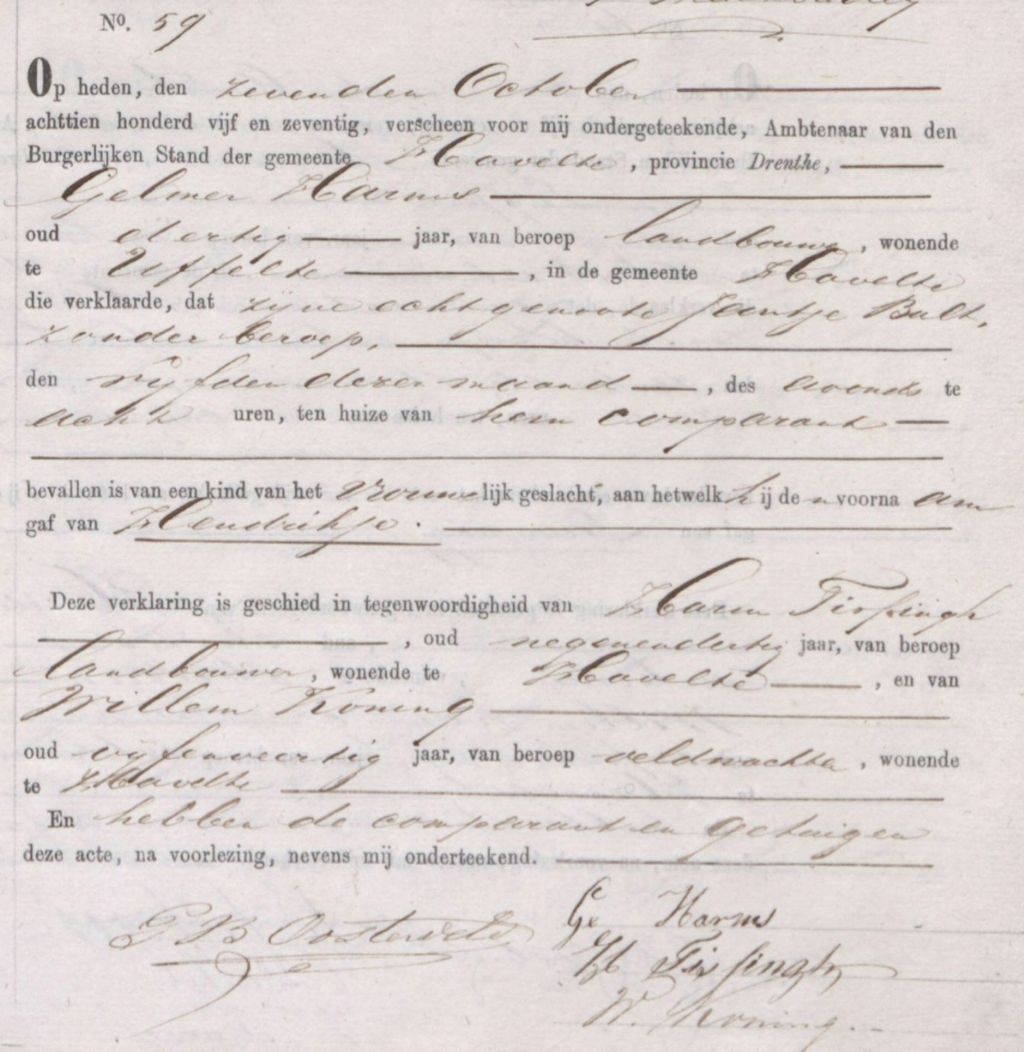 No. 59
Op heden, den zevenden October
achttien honderd vijf en zeventig, verscheen voor mij ondergeteekende, Ambtenaar van den
Burgerlijken Stand der gemeente Havelte, provincie Drenthe,
Gelmer Harms
oud dertig jaar, van beroep landbouwer, wonende
te Uffelte, in de gemeente Havelte
die verklaarde, dat zijne echtgenoote Jantje Bult,
zonder beroep,
den vijfden dezer maand, des avonds te
acht uren, ten huize van hem comparant
bevallen is van een kind van het vrouwelijk geslacht, aan hetwelk hij de n voorna am
gaf van Hendrikje.
Deze verklaring is geschied in tegenwoordigheid van Harm Tissingh
, oud negenendertig jaar, van beroep
landbouwer, wonende te Havelte, en van
Willem Koning
oud vijfenveertig jaar, van beroep veldwachter, wonende
te Havelte
En hebben de comparant en getuigen
deze acte, na voorlezing, nevens mij onderteekend.
Ge Harms
H Tissingh
W. Koning.